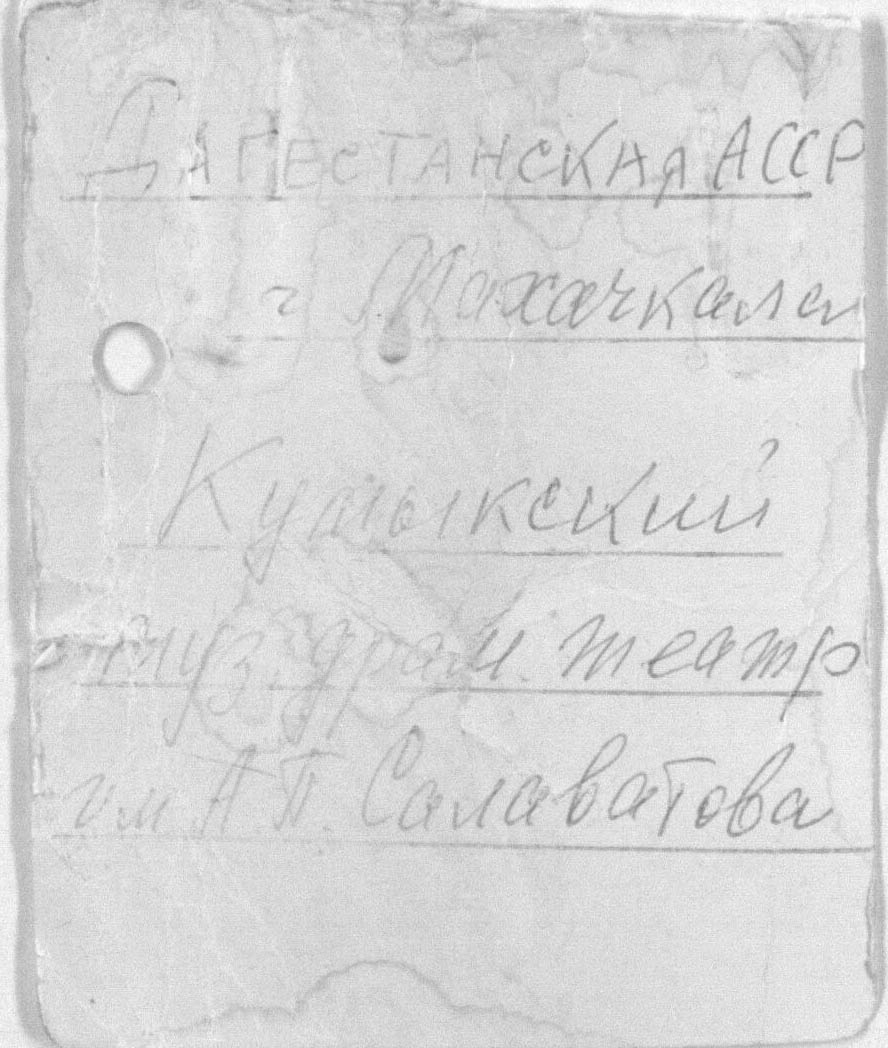 ДАГЕСТАНСКАЯ АССР
г Махачкала
Кумыкский
муз. драм. театр
им А.П. Салаватова